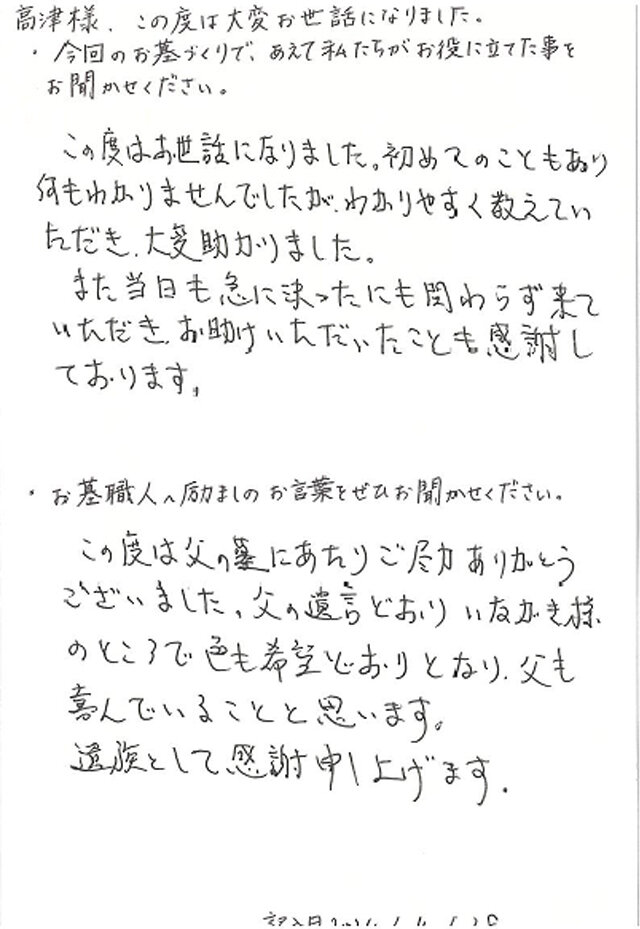 高津様、この度は大変お世話になりました。
・今回のお墓づくりで、あえて私たちがお役に立てた事を
お聞かせください。
この度はお世話になりました。初めてのこともあり
何もわかりませんでしたが、わかりやすく教えてい
ただき、大変助かりました。
また当日も急に決ったにも関わらず来て
いただき、お助けいただいたことも感謝し
ております。
・お墓職人へ励ましのお言葉をぜひお聞かせください。
この度は父の墓にあたりご尽力ありがとう
ございました。父の遺言どおりいながき様
のところで色も希望どおりとなり、父も
喜んでいることと思います。
遺族として感謝申し上げます。